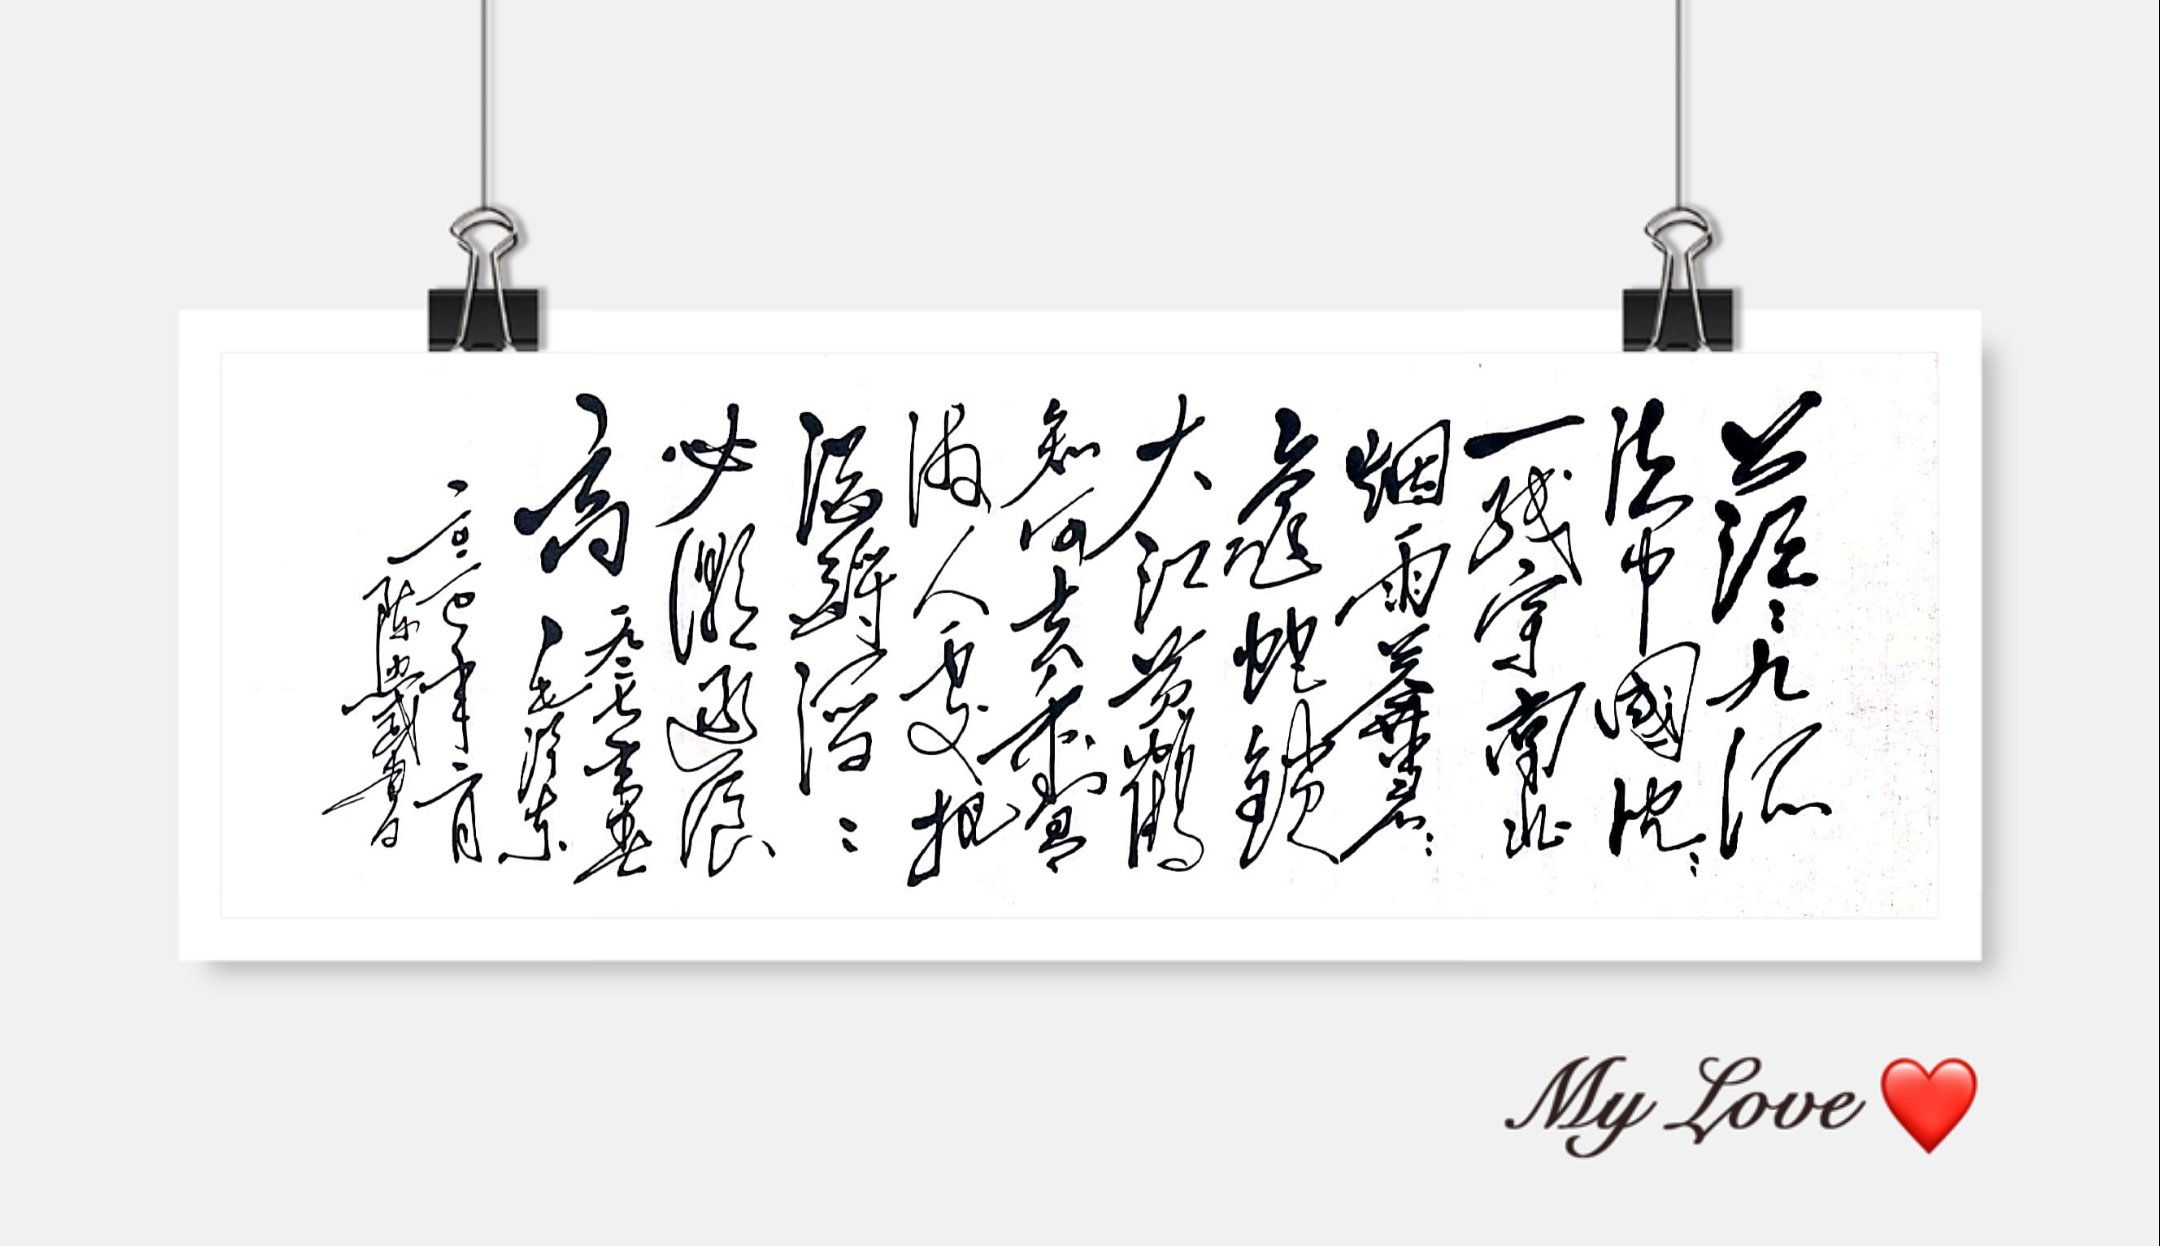 茫茫九派
流中國沉沉
一线穿南北
烟雨莽蒼蒼
龜蛇鎖
大江黄鶴
知何去剩有
游人处把
酒酹滔滔
心潮逐浪
高
一九二七
毛泽东
年二月
陈
My Love